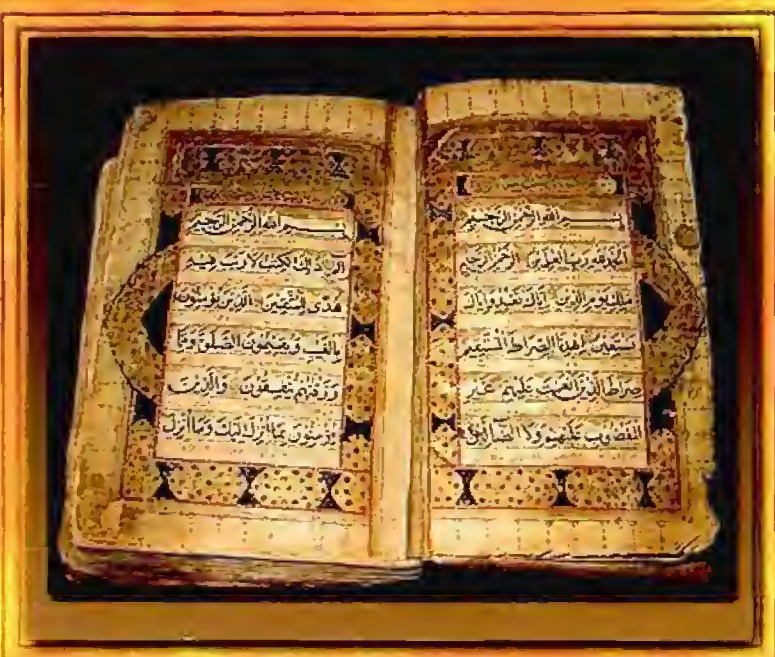 بسم الله الرحمن الرحيم
الحمد لله رب العلمين الرحمن الرحيم
ملك يوم الدين إياك نعبد وإياك
نستعين اهدنا الصراط المستقيم
صراط الذين أنعمت عليهم غير
المغضوب عليهم ولا الضالين
بسم الله الرحمن الرحيم
الم ذلك الكتب لا ريب فيه
هدى للمتقين الذين يؤمنون
بالغيب ويقيمون الصلوة ومما
رزقنهم ينفقون والذين
يؤمنون بما أنزل إليك وما أنزل